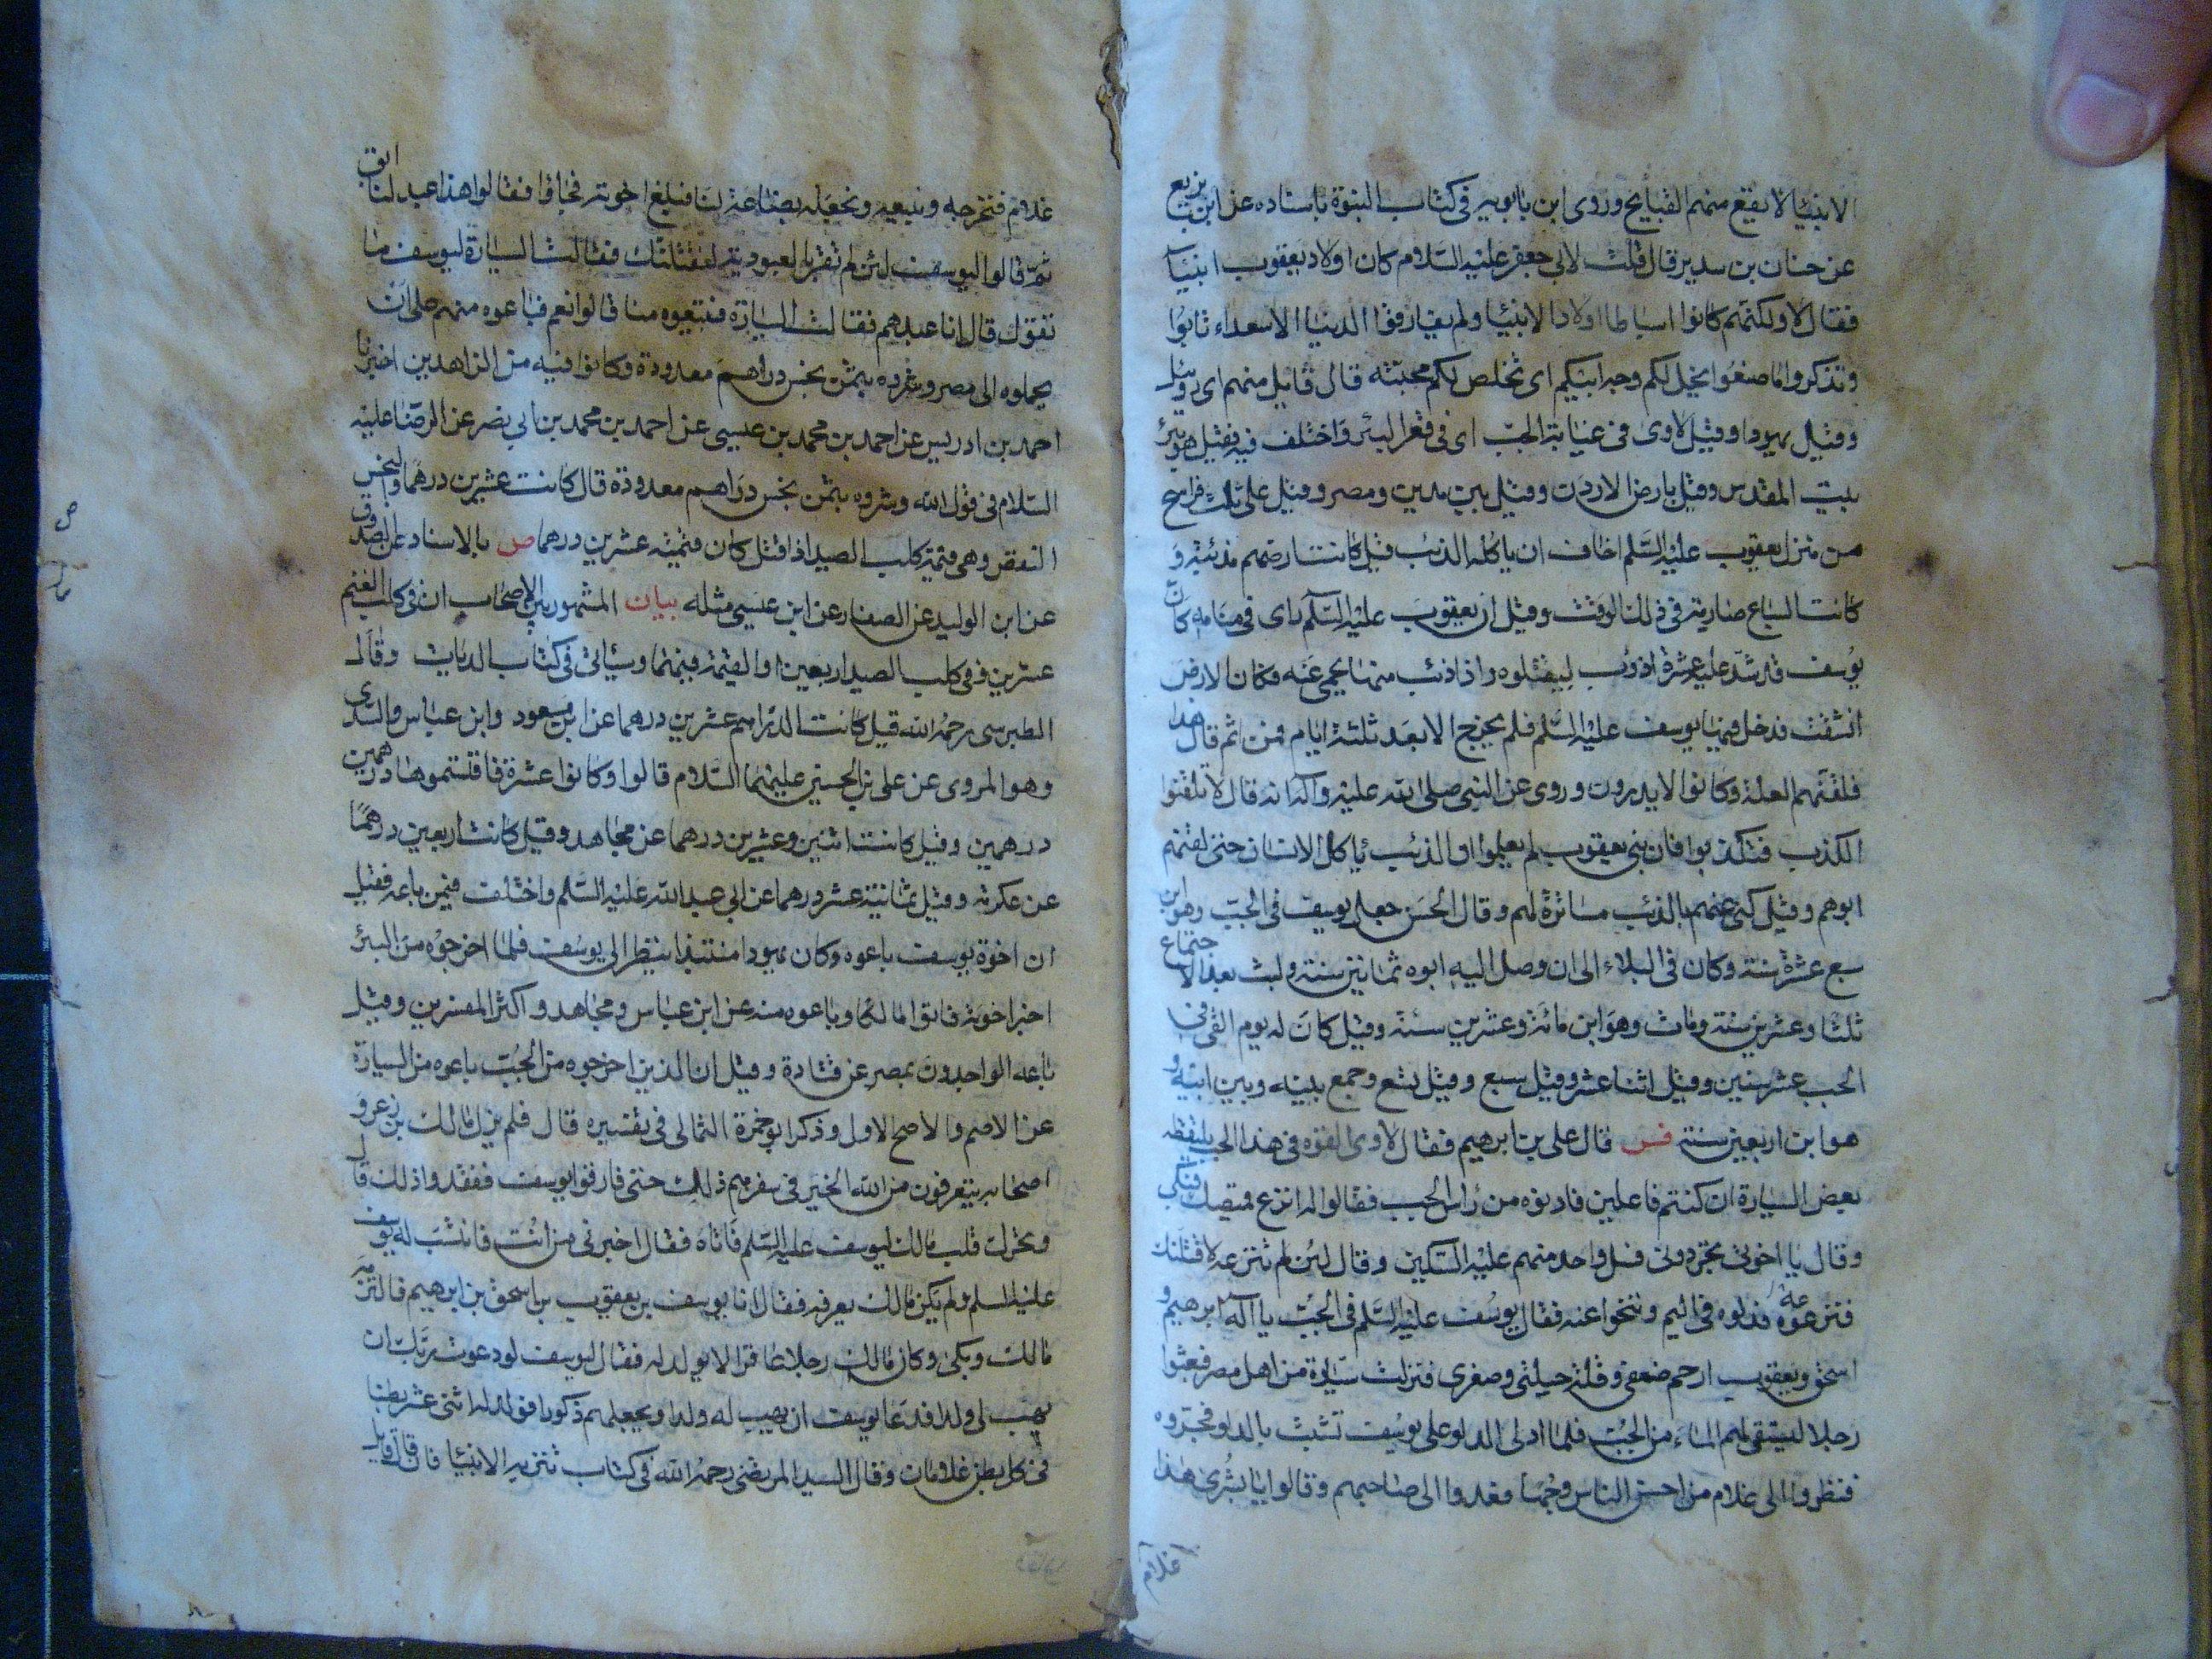 الانبيا لا يقع منهم القبايح وروى ابن بابويه فى كتاب النبوة باسناده عن ابن بزيع
عن حنان بن سدير قال قلت لابى جعفر عليه السلام كان اولاد يعقوب انبيآ
فقال لا ولكنهم كانوا اسباطا اولاد الانبيا ولم يفارقوا الدنيا الا سعداء تابوا
وتذكروا ما صنعوا يخل لكم وجه ابيكم اى تخلص لكم محبته قال قايل منهم اى روبيل
وقيل يهودا وقيل لاوى فى غيابة الجب اى فى قعر البئر واختلف فيه فقيل هو بئر
بيت المقدس وقيل بارض الاردن وقيل بين مدين ومصر وقيل على ثلث فراسخ
من منزل يعقوب عليه السلم اخاف ان ياكله الذئب قيل كانت ارضهم مذئبة و
كانت السباع ضارية فى ذلك الوقت وقيل ان يعقوب عليه السلم راى فى منامه كان
يوسف قد شد عليه عشرة اذؤب ليقتلوه واذا ذئب منها يحمى عنه فكان الارض
انشقت فدخل فيها يوسف عليه السلم فلم يخرج الا بعد ثلثة ايام فمن ثم قال هذا
فلقنهم العلة وكانوا لا يدرون وروى عن النبى صلى الله عليه وآله انه قال لا تلقنوا
الكذب فتكذبوا فان بنى يعقوب لم يعلموا ان الذئب ياكل الانسان حتى لقنهم
ابوهم وقيل كنى عنهم بالذئب مساترة لهم وقال الحسن جعل يوسف فى الجب وهو ابن
سبع عشرة سنة وكان فى البلاء الى ان وصل اليه ابوه ثمانين سنة ولبث بعد الاجتماع
ثلثا وعشرين سنة ومات وهو ابن مائة وعشرين سنة وقيل كان له يوم القى فى
الجب عشر سنين وقيل اثنا عشر وقيل سبع وقيل تسع وجمع بينه وبين ابيه و
هو ابن اربعين سنة فس قال على بن ابرهيم فقال لاوى القوه فى هذا الجب يلتقطه
بعض السيارة ان كنتم فاعلين فادنوه من راس الجب فقالوا له انزع قميصك فبكى
وقال يا اخوتى تجردونى فسل واحد منهم عليه السكين وقال لئن لم تنزعه لاقتلنك
فنزعوه فدلوه فى اليم وتنحوا عنه فقال يوسف عليه السلم فى الجب يا آله ابرهيم و
اسحق ويعقوب ارحم ضعفى وقلة حيلتى وصغرى فنزلت سيارة من اهل مصر فبعثوا
رجلا ليستقى لهم الماء من الجب فلما ادلى الدلو على يوسف تشبث بالدلو فجروه
فنظروا الى غلام من احسن الناس وجها فعدوا الى صاحبهم وقالوا يا بشرى هذا
غلام
غلام فنخرجه ونبيعه ونجعله بضاعة لنا فبلغ اخوته فجاؤا فقالوا هذا عبد لنا ابق
ثم قالوا ليوسف لئن لم تقر بالعبودية لنقتلنك فقالت السيارة ليوسف ما
تقول قال انا عبدهم فقالت السيارة فتبيعوه منا قالوا نعم فباعوه منهم على ان
يحملوه الى مصر وشروه بثمن بخس دراهم معدودة وكانوا فيه من الزاهدين اخبرنا
احمد بن ادريس عن احمد بن محمد بن عيسى عن احمد بن محمد بن ابي نصر عن الرضا عليه
السلام فى قول الله وشروه بثمن بخس دراهم معدودة قال كانت عشرين درهما والبخس
النقص وهى قيمة كلب الصيد اذا قتل كان قيمته عشرين درهما ص بالاسناد عن الصدوق
عن ابن الوليد عن الصفار عن ابن عيسى مثله بيان المشهور بين الاصحاب ان فى كلب الغنم
عشرين وفى كلب الصيد اربعين او القيمة فيهما وسيأتى فى كتاب الديات وقال
الطبرسى رحمه الله قيل كانت الدراهم عشرين درهما عن ابن مسعود وابن عباس والسدى
وهو المروى عن على بن الحسين عليهما السلام قالوا وكانوا عشرة فاقتسموها درهمين
درهمين وقيل كانت اثنين وعشرين درهما عن مجاهد وقيل كانت اربعين درهما
عن عكرمة وقيل ثمانية عشر درهما عن ابى عبد الله عليه السلم واختلف فيمن باعه فقيل
ان اخوة يوسف باعوه وكان يهودا منتبذا ينظر الى يوسف فلما اخرجوه من البئر
اخبر اخوته فاتوا مالكا وباعوه منه عن ابن عباس ومجاهد واكثر المفسرين وقيل
باعه الواجدون بمصر عن قتادة وقيل ان الذين اخرجوه من الجب باعوه من السيارة
عن الاصم والاصح الاول وذكر ابو حمزة الثمالى فى تفسيره قال فلم يزل مالك بن زعر و
اصحابه يتعرفون من الله الخير فى سفرهم ذلك حتى فارقوا يوسف ففقدوا ذلك قال
وتحرك قلب مالك ليوسف عليه السلم فاتاه فقال اخبرنى من انت فانتسب له يوسف
عليه السلم ولم يكن مالك يعرفه فقال انا يوسف بن يعقوب بن اسحق بن ابرهيم فالتزمه
مالك وبكى وكان مالك رجلا عاقرا لا يولد له فقال ليوسف لو دعوت ربك ان
يهب لى ولدا فدعا يوسف ان يهب له ولدا ويجعلهم ذكورا فولد له اثنى عشر بطنا
فى كل بطن غلامان وقال السيد المرتضى رحمه الله فى كتاب تنزيه الانبيا فان قال قايل